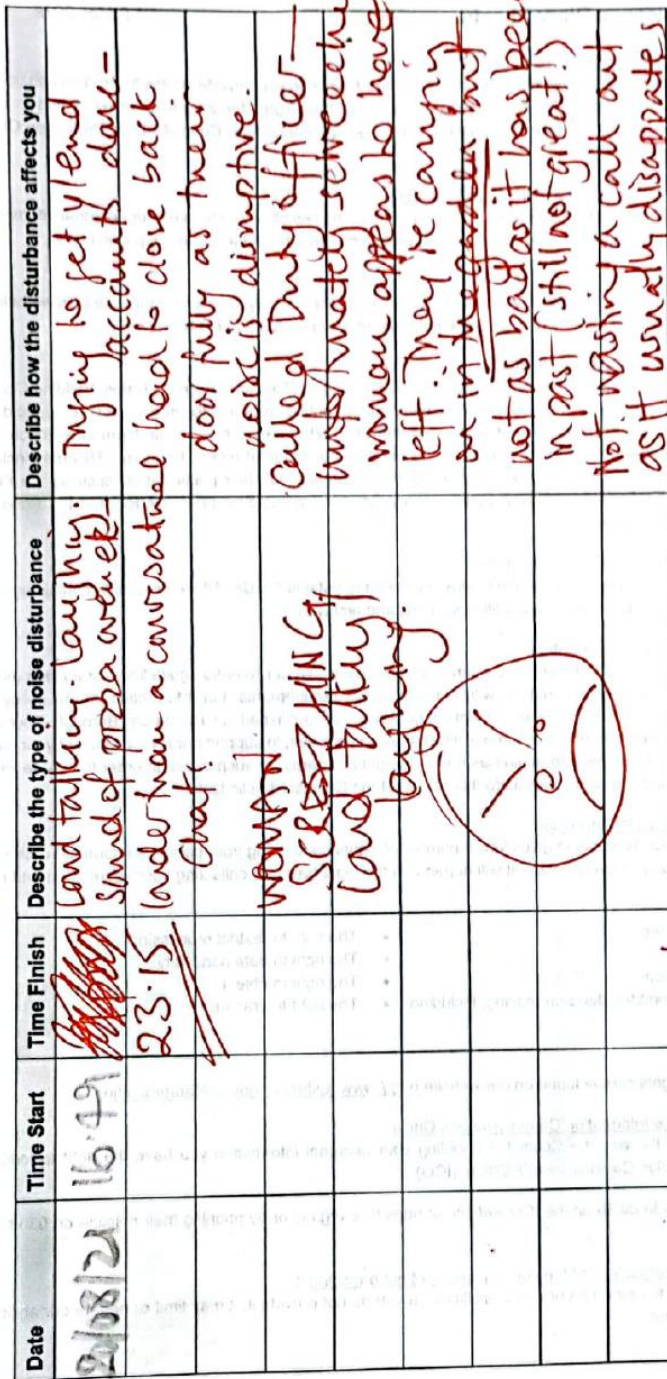 Date Time Start Time Finish Describe the type of noise disturbance Describe how the disturbance affects you
20/08/21 16:49
23.15
Loud talking, Laughing,
she drops a
louder than a conversational
chat
WOMAN
SCREECHING,
Loud filthy
laughing
having to
becomes dark -
head to close back
door fully as their
talk is disruptive
Called Duty officer -
unfortunately screeching
woman appears to have
left. They're camping
out in the garden but
not as bad as it has been
in past (still not great!)
Not wasting a call out
as it usually dissappates